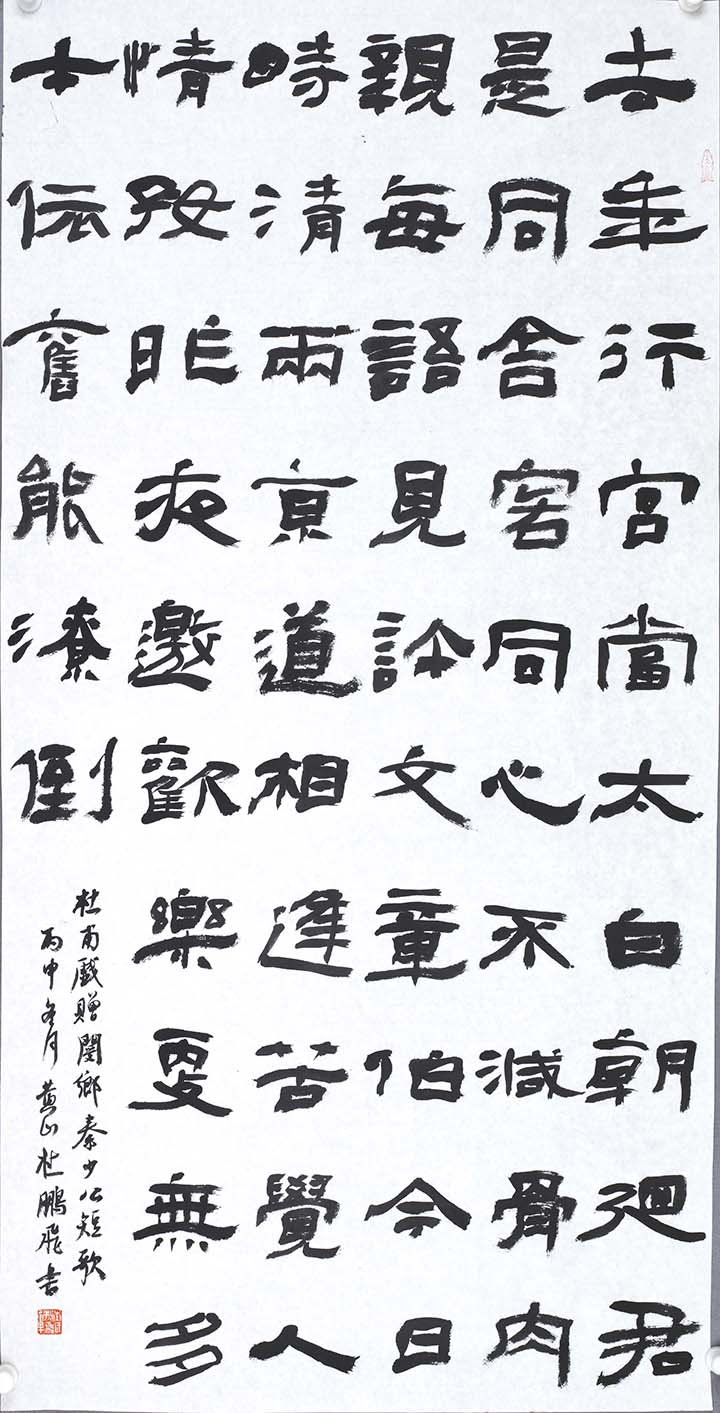 去年行宮當太白朝迴君
是同舍客同心不減骨肉
親每語見許文章伯今日
時清兩京道相逢苦覺人
情好昨夜邀歡樂更無多
才依舊能潦倒
杜甫戲贈閿鄉秦少公短歌
丙申冬月黃山杜鵬飛書